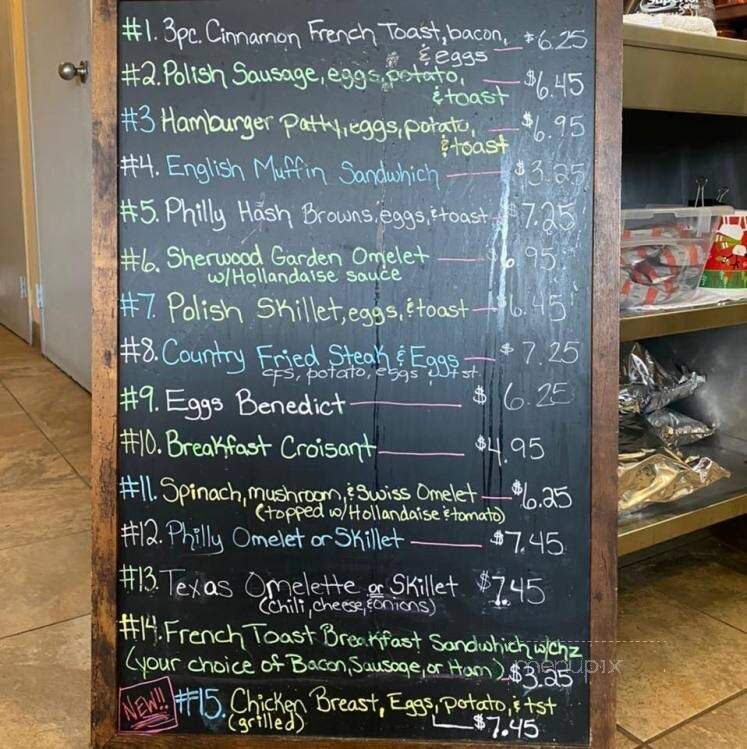 #1. 3pc. Cinnamon French Toast, bacon, $6.25
& eggs
#2. Polish Sausage, eggs, potato, $6.45
& toast
#3 Hamburger Patty, eggs, potato, $6.95
& toast
#4. English Muffin Sandwhich $3.25
#5. Philly Hash Browns, eggs, & toast $7.25
#6. Sherwood Garden Omelet 6.95
w/Hollandaise sauce
#7. Polish Skillet, eggs, & toast 6.45
#8. Country Fried Steak & Eggs $7.25
CFS, potato, eggs & tst.
#9. Eggs Benedict $6.25
#10. Breakfast Croisant $4.95
#11. Spinach, mushroom, & Swiss Omelet $6.25
(topped w/Hollandaise & tomato)
#12. Philly Omelet or Skillet $7.45
#13. Texas Omelette or Skillet $7.45
(chili, cheese, & onions)
#14. French Toast Breakfast Sandwhich w/chz
(your choice of Bacon, Sausage, or Ham) $3.25
menupix
NEW!! #15. Chicken Breast, Eggs, potato, & tst
(grilled) $7.45